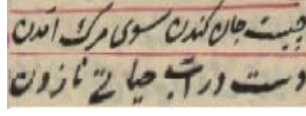 چیست جان کندن سوی مرک امدن
دست در آب حیاتے نازدن